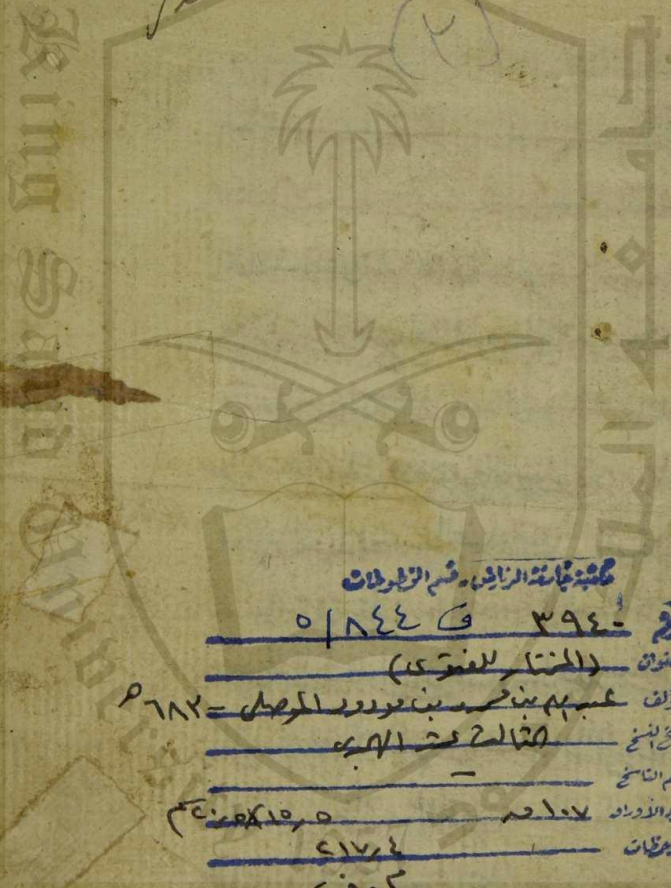 ٢
King Saud University
مكتبة جامعة الرياض - قسم المخطوطات
٣٩٤٠ ف ٨٤٤/٥
(المختار للفتوى)
عبدالله بن محمود بن مودود الموصلي = ٦٨٣ هـ
تاريخ النسخ الثالث عشر الهجري
اسم الناسخ —
عدد الأوراق ١٠٧ ق ١٥,٥×٢٠,٥ سم
٢١٧,٤